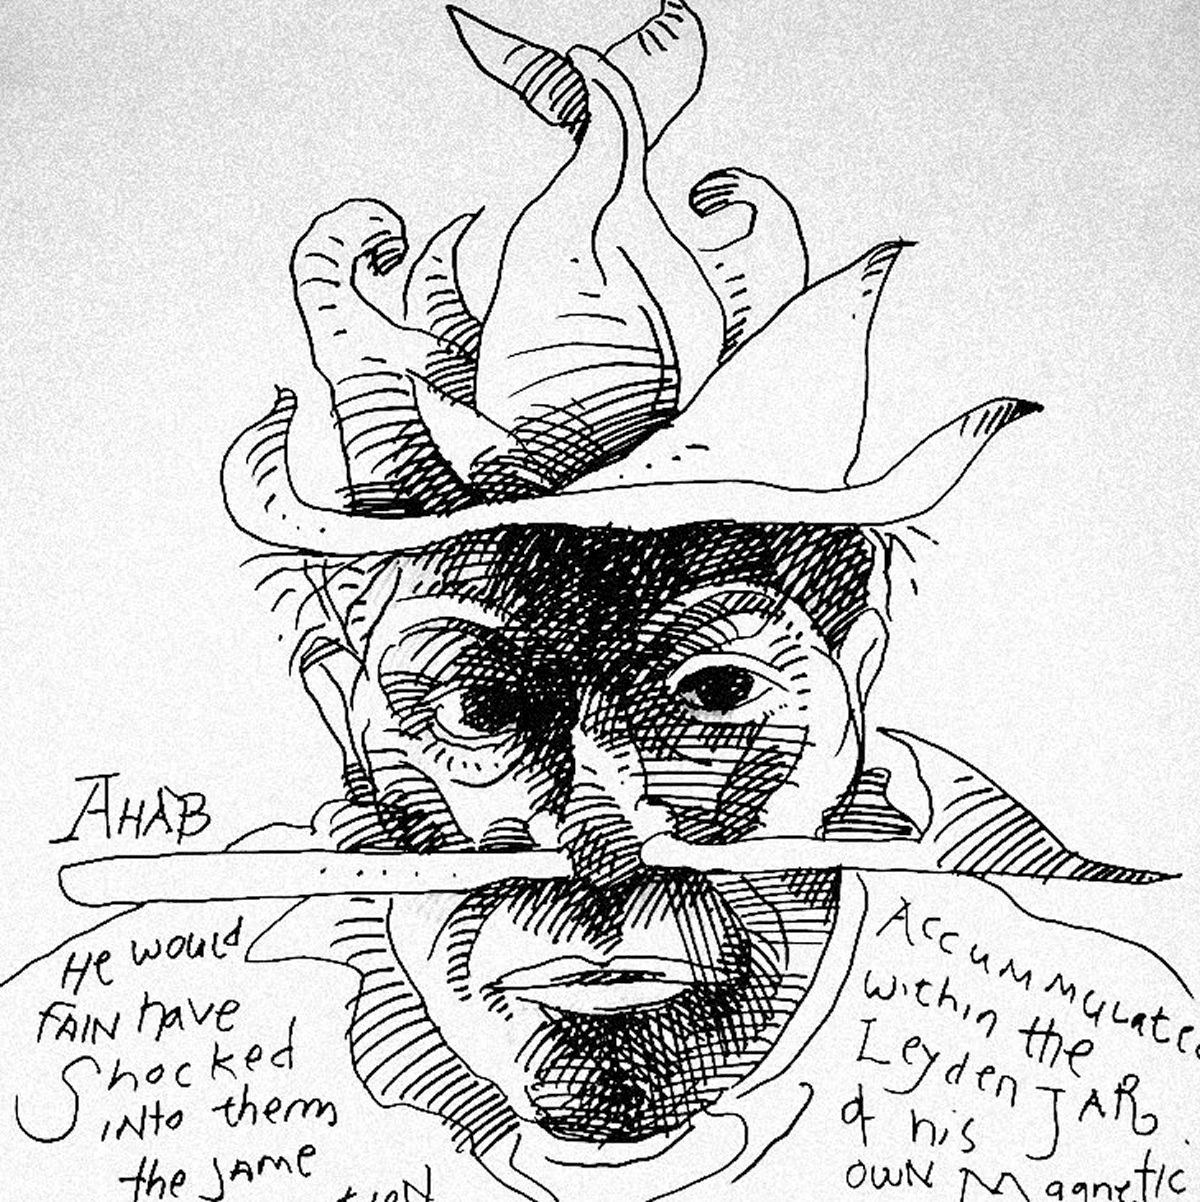 AHAB
He would
FAIN have
Shocked
iNto them
the sAme
Accummulated
within the
Leyden JAR
of his
OWN Magnetic